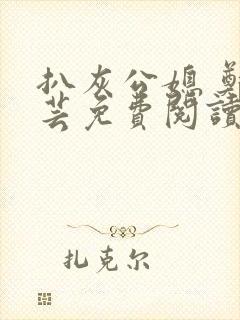 扒灰公媳
芸免費閱讀
扎克尔